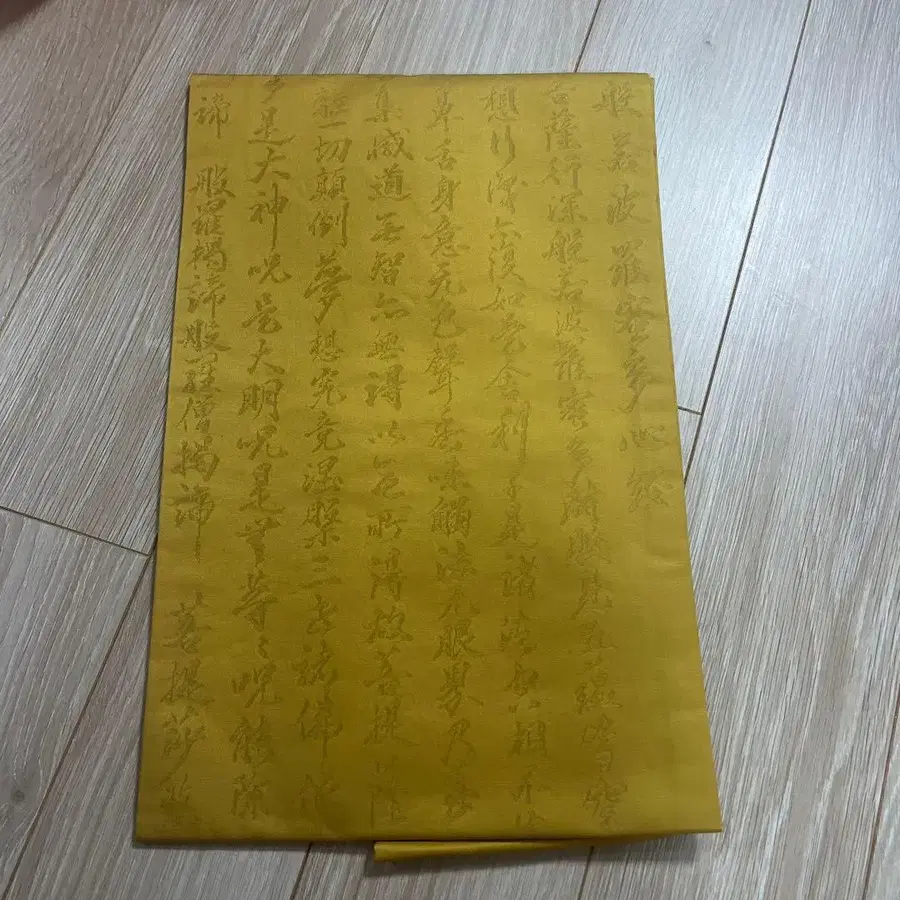 般若波羅蜜多心経
菩薩行深般若波羅蜜多時照見五蘊皆空
想行識亦復如是舍利子是諸法空相不生
鼻舌身意无色聲香味觸法无眼界乃至
集滅道无智亦無得以无所得故菩提薩
離一切顛倒夢想究竟涅槃三世諸佛依
多是大神呪是大明呪是无等々呪能除
諦 般羅揭諦般羅僧揭諦 菩提莎婆